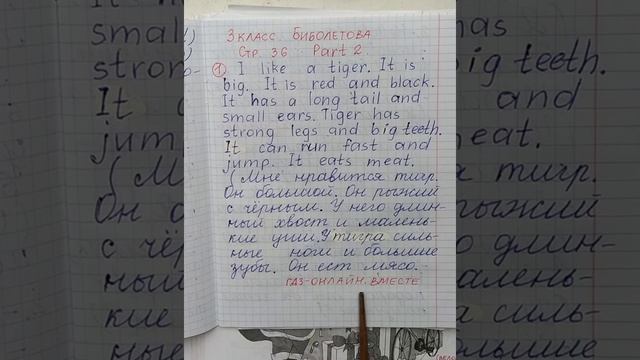 3 КЛАСС. БИБОЛЕТОВА
Стр. 36 Part 2.
1 I like a tiger. It is
big. It is red and black.
It has a long tail and
small ears. Tiger has
strong legs and big teeth.
It can run fast and
jump. It eats meat.
(Мне нравится тигр.
Он большой. Он рыжий
с чёрным. У него длин-
ный хвост и малень-
кие уши. У тигра силь-
ные ноги и большие
зубы. Он ест мясо.
ГДЗ-ОНЛАЙН. ВМЕСТЕ